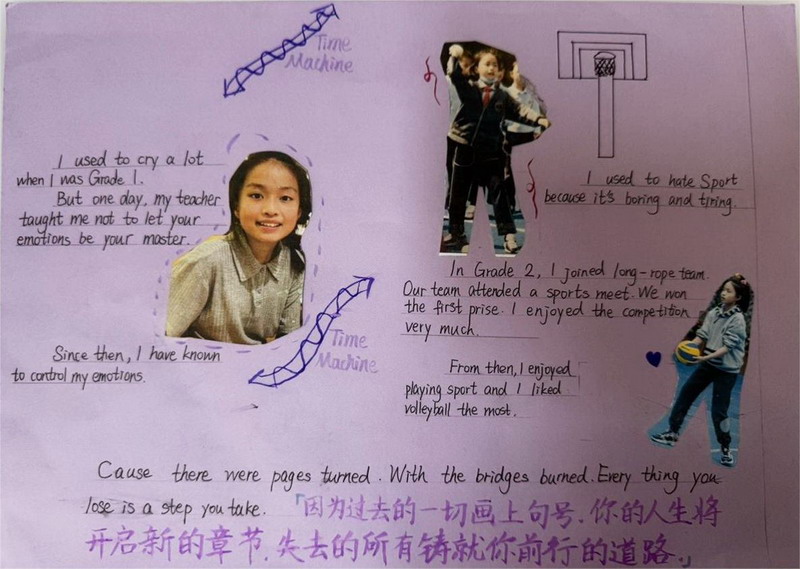 Time
Machine
I used to cry a lot
when I was Grade 1.
But one day, my teacher
taught me not to let your
emotions be your master.
Since then, I have known
to control my emotions.
I used to hate Sport
because it's boring and tiring.
In Grade 2, I joined long-rope team.
Our team attended a sports meet. We won
the first prise. I enjoyed the competition
very much.
Time
Machine
From then, I enjoyed
playing sport and I liked
volleyball the most.
Cause there were pages turned. With the bridges burned. Every thing you
lose is a step you take. 「因为过去的一切画上句号，你的人生将
开启新的章节，失去的所有铸就你前行的道路。」